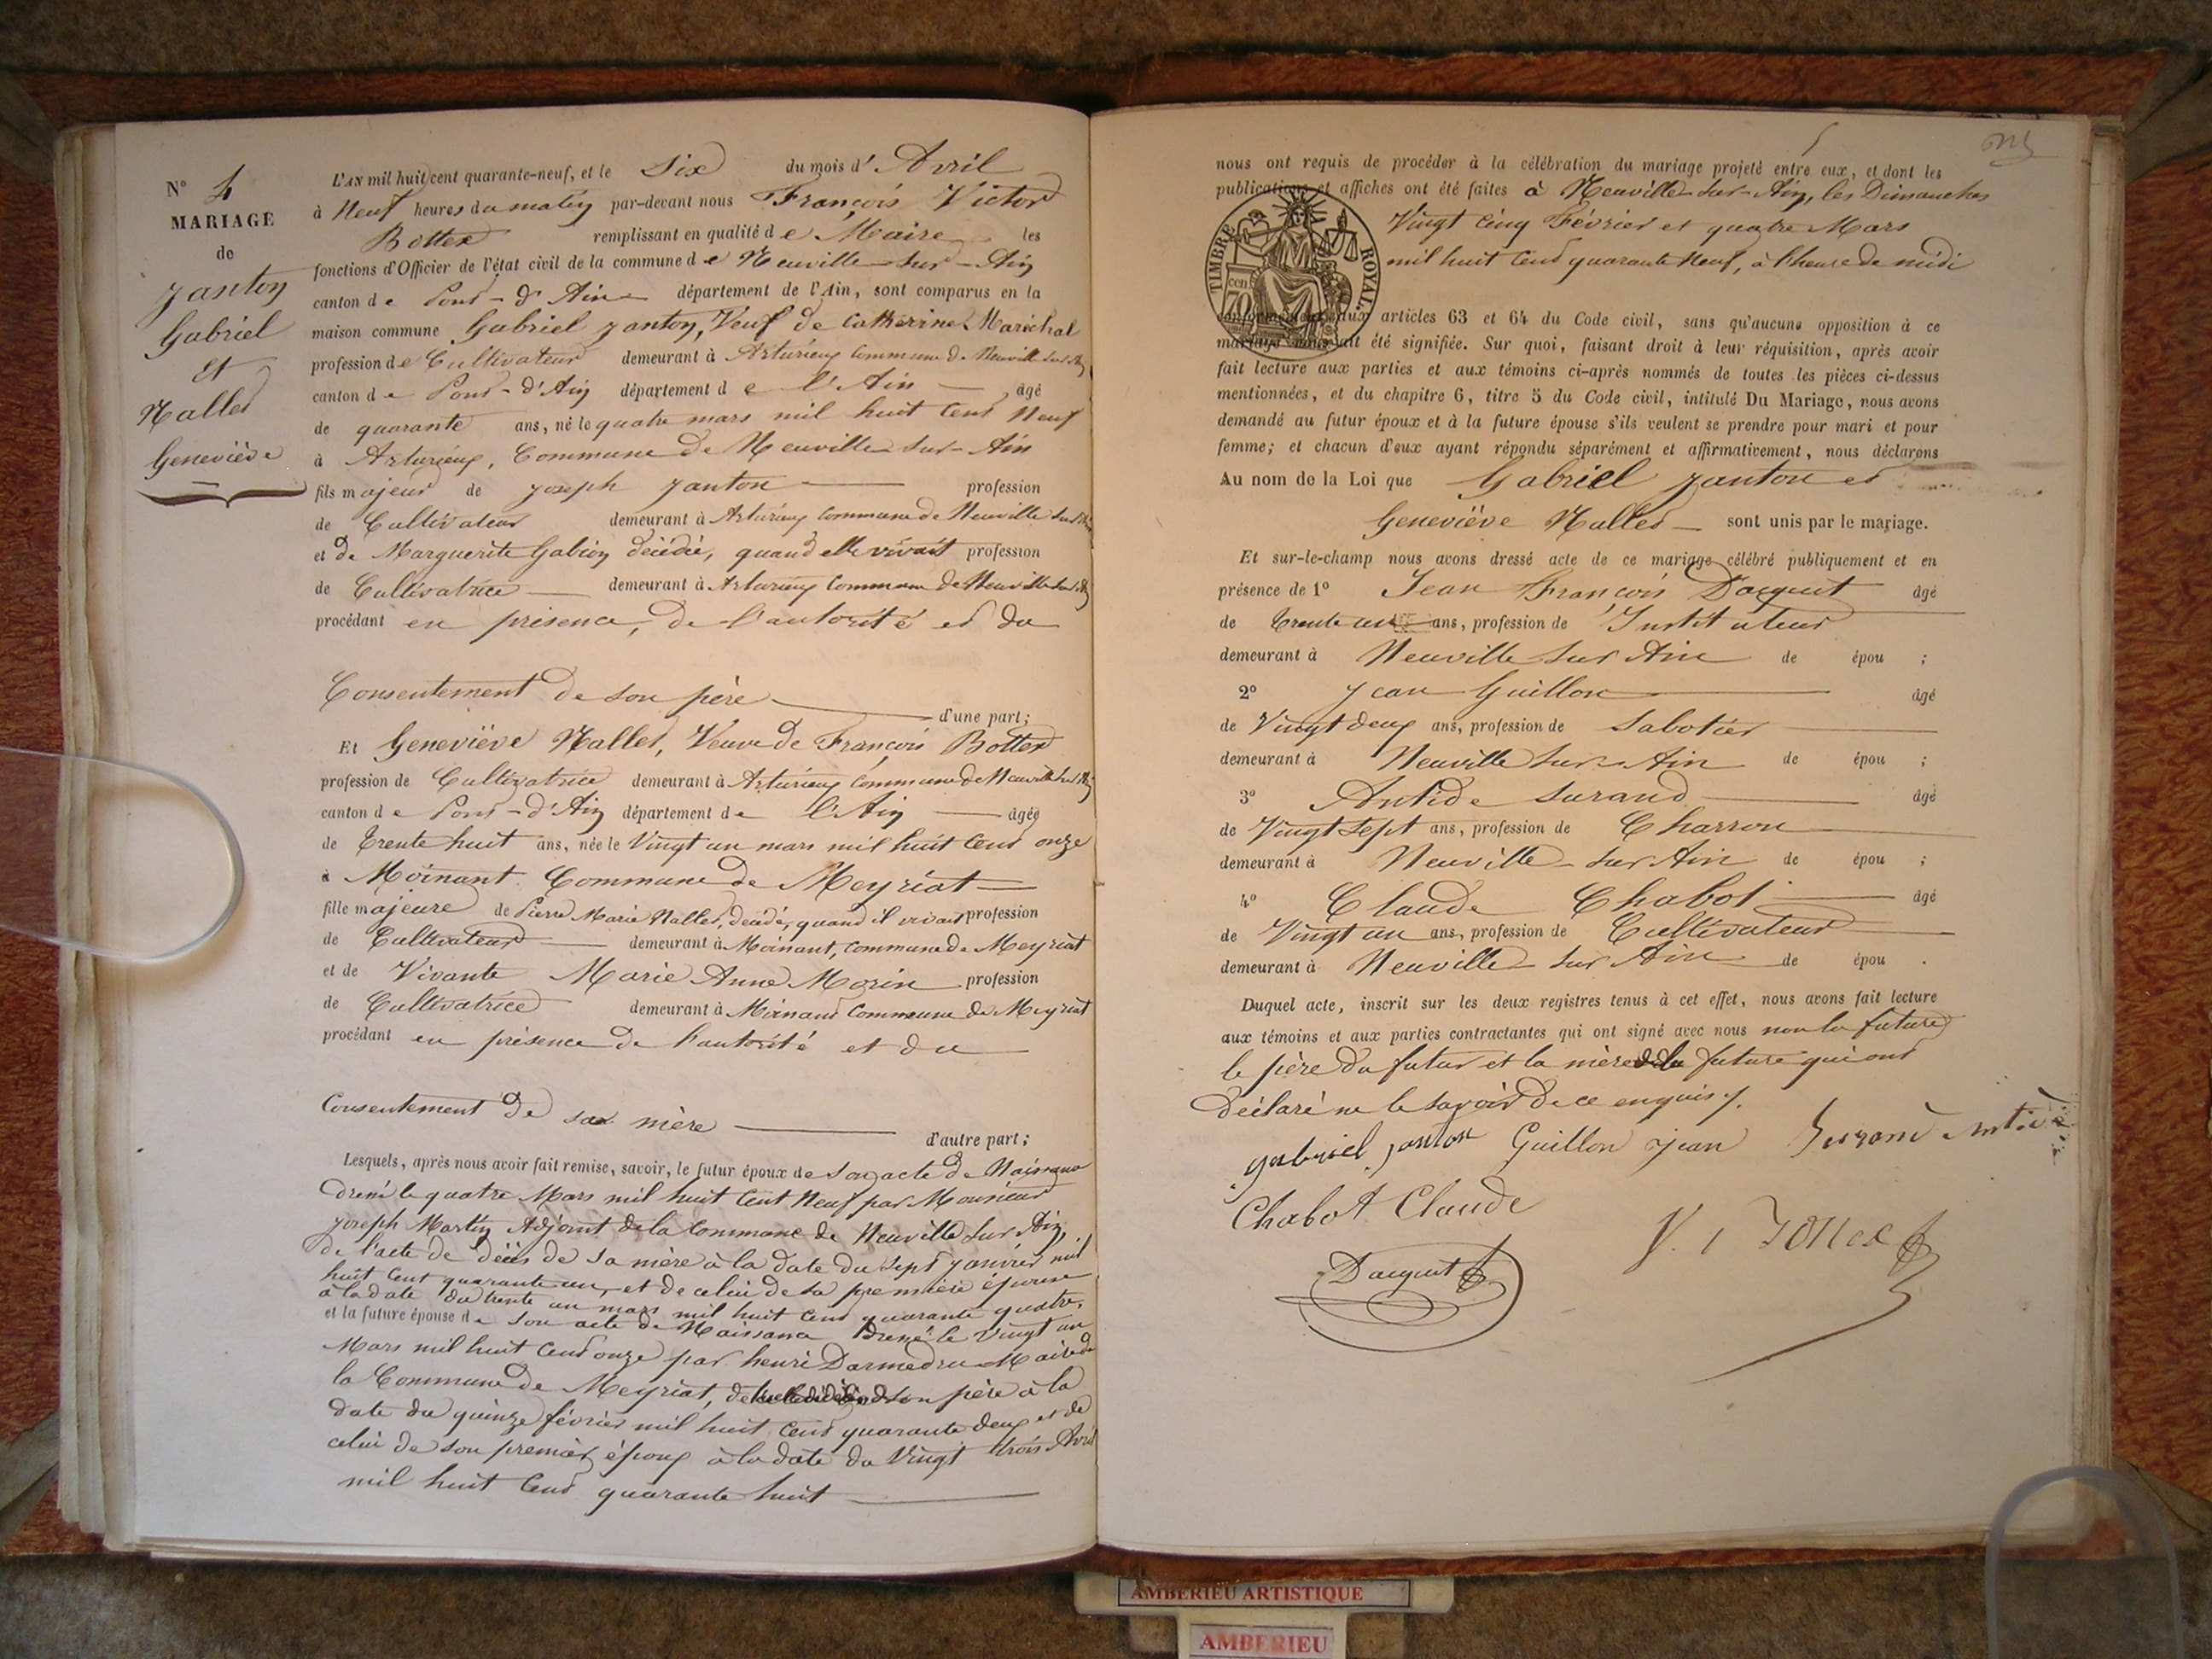 N° 4
MARIAGE
de
Janton
Gabriel
Et
Nallet
Geneviève
L'AN mil huit cent quarante-neuf, et le Six du mois d'Avril
à Neuf heures du matin par-devant nous François Victor
Bottex remplissant en qualité de Maire les
fonctions d'Officier de l'état civil de la commune de Neuville-sur-Ain
canton de Pont-d'Ain département de l'Ain, sont comparus en la
maison commune Gabriel Janton, Veuf de Catherine Maréchal
profession de Cultivateur demeurant à Arturieux Commune de Neuville sur Ain
canton de Pont-d'Ain département de l'Ain âgé
de quarante ans, né le quatre mars mil huit Cent Neuf
à Arturieux, Commune de Neuville-sur-Ain
fils majeur de Joseph Janton profession
de Cultivateur demeurant à Arturieux Commune de Neuville sur Ain
et de Marguerite Gabion décédée, quand elle vivait profession
de Cultivatrice demeurant à Arturieux Commune de Neuville sur Ain
procédant en présence, de l'autorité et du
Consentement de son père d'une part;
Et Geneviève Nallet, Veuve de François Bottex
profession de Cultivatrice demeurant à Arturieux Commune de Neuville sur Ain
canton de Pont-d'Ain département de l'Ain âgée
de Trente huit ans, née le Vingt un mars mil huit Cent onze
à Moinant Commune de Meyriat
fille majeure de Pierre Marie Nallet, décédé, quand il vivait profession
de Cultivateur demeurant à Moinant, commune de Meyriat
et de Vivante Marie Anne Morin profession
de Cultivatrice demeurant à Moinant Commune de Meyriat
procédant en présence de l'autorité et du
Consentement de sa mère d'autre part;
Lesquels, après nous avoir fait remise, savoir, le futur époux de son acte de Naissance
dressé le quatre Mars mil huit Cent Neuf par Monsieur
Joseph Martin Adjoint de la Commune de Neuville sur Ain,
de l'acte de décès de sa mère à la date du sept Janvier mil
huit Cent quarante un, et de celui de sa première épouse
à la date du trente un mars mil huit Cent quarante quatre,
et la future épouse de son acte de Naissance dressé le Vingt un
Mars mil huit Cent onze par henri Darmedru Maire de
la Commune de Meyriat, de son père à la
date du quinze février mil huit Cent quarante deux et de
celui de son premier époux à la date du Vingt trois Avril
mil huit Cent quarante huit
nous ont requis de procéder à la célébration du mariage projeté entre eux, et dont les
publications et affiches ont été faites à Neuville-sur-Ain, les Dimanches
Vingt Cinq Février et quatre Mars
mil huit Cent quarante Neuf, à l'heure de midi
TIMBRE ROYAL
70 cen
conformément aux articles 63 et 64 du Code civil, sans qu'aucune opposition à ce
mariage nous ait été signifiée. Sur quoi, faisant droit à leur réquisition, après avoir
fait lecture aux parties et aux témoins ci-après nommés de toutes les pièces ci-dessus
mentionnées, et du chapitre 6, titre 5 du Code civil, intitulé Du Mariage, nous avons
demandé au futur époux et à la future épouse s'ils veulent se prendre pour mari et pour
femme; et chacun d'eux ayant répondu séparément et affirmativement, nous déclarons
Au nom de la Loi que Gabriel Janton et
Geneviève Nallet sont unis par le mariage.
Et sur-le-champ nous avons dressé acte de ce mariage célébré publiquement et en
présence de 1° Jean François Dacquit âgé
de Trente un ans, profession de Instituteur
demeurant à Neuville sur Ain de épou ;
2° Jean Guillon âgé
de Vingt deux ans, profession de Sabotier
demeurant à Neuville sur Ain de épou ;
3° Antide Surand âgé
de Vingt sept ans, profession de Charron
demeurant à Neuville sur Ain de épou ;
4° Claude Chabot âgé
de Vingt un ans, profession de Cultivateur
demeurant à Neuville sur Ain de épou .
Duquel acte, inscrit sur les deux registres tenus à cet effet, nous avons fait lecture
aux témoins et aux parties contractantes qui ont signé avec nous non la future
le père du futur et la mère de la future qui ont
déclaré ne le savoir de ce enquis.
gabriel janton Guillon jean Surand Antide
Chabot Claude
V. Bottex
Dacquit
AMBERIEU ARTISTIQUE
AMBERIEU